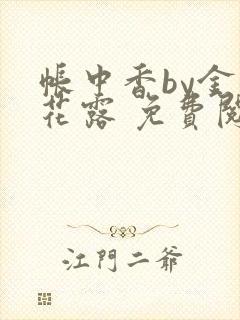 帳中香by金
花露 免費閱
江門二爺